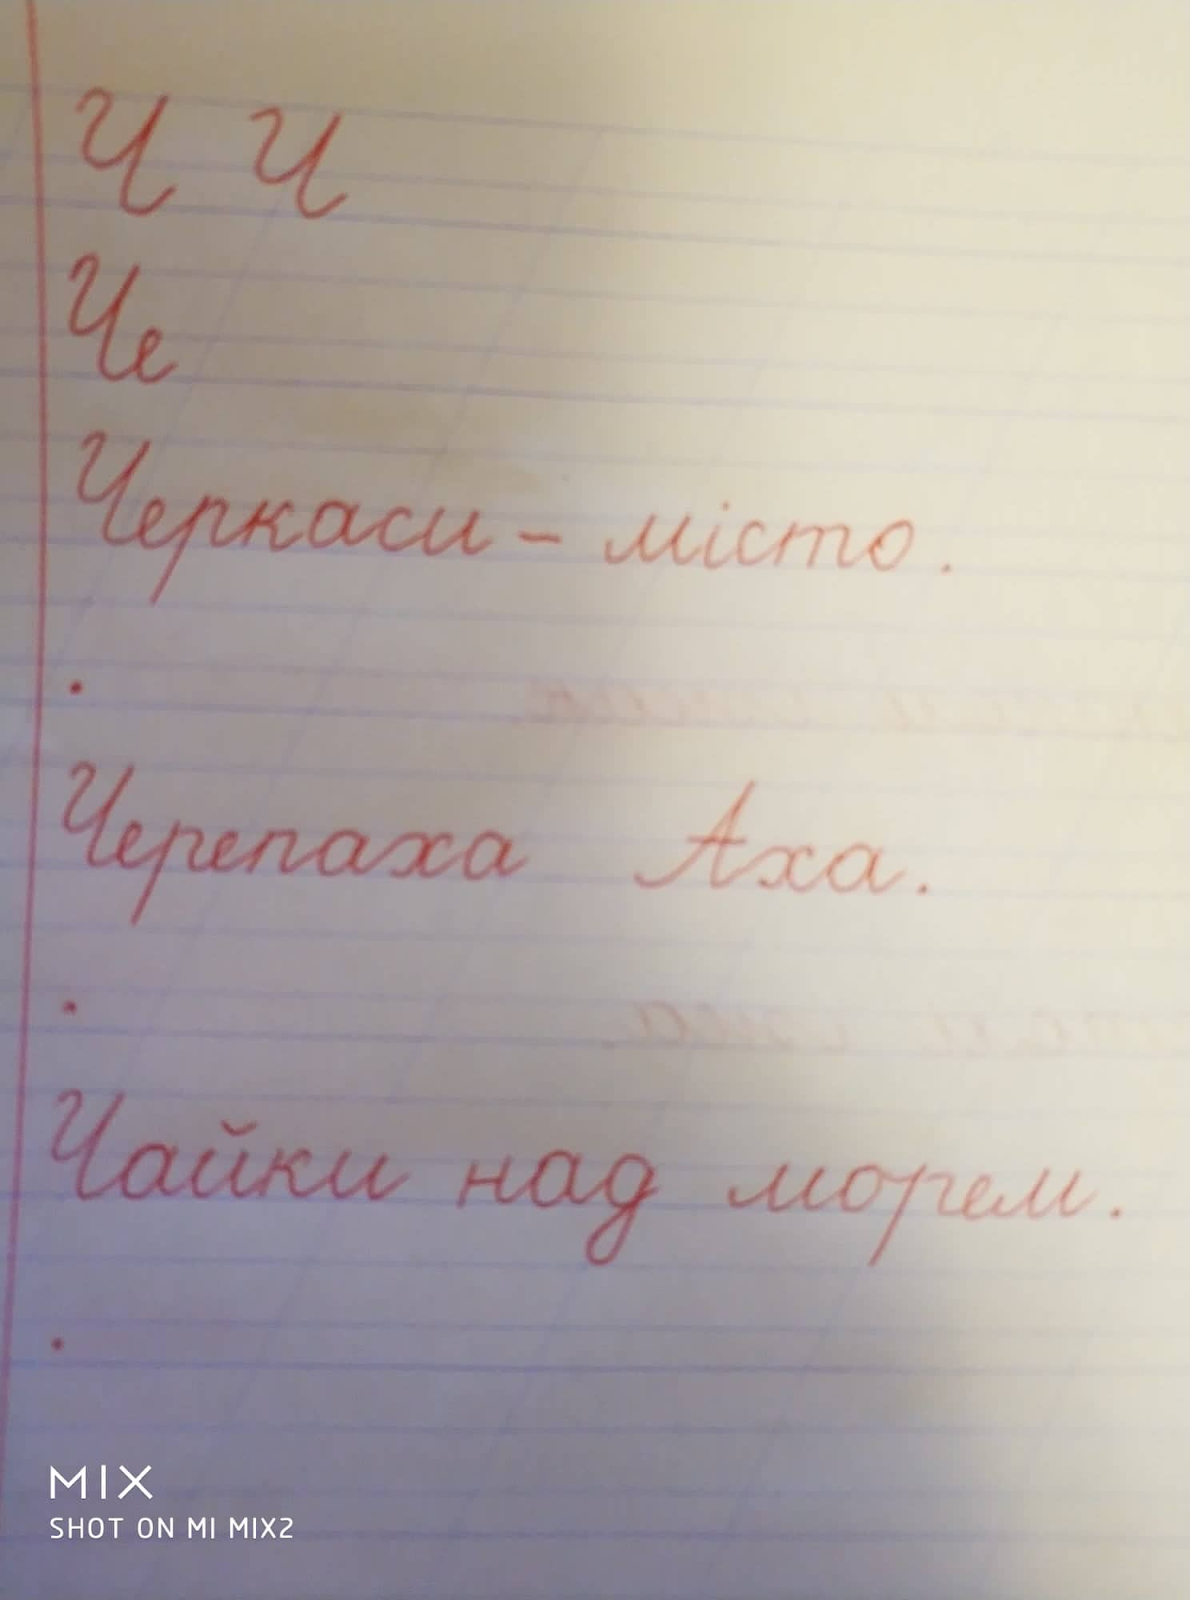 Ч Ч
Че
Черкаси - місто.
.
Черепаха Аха.
.
Чайки над морем.
.
MIX
SHOT ON MI MIX2